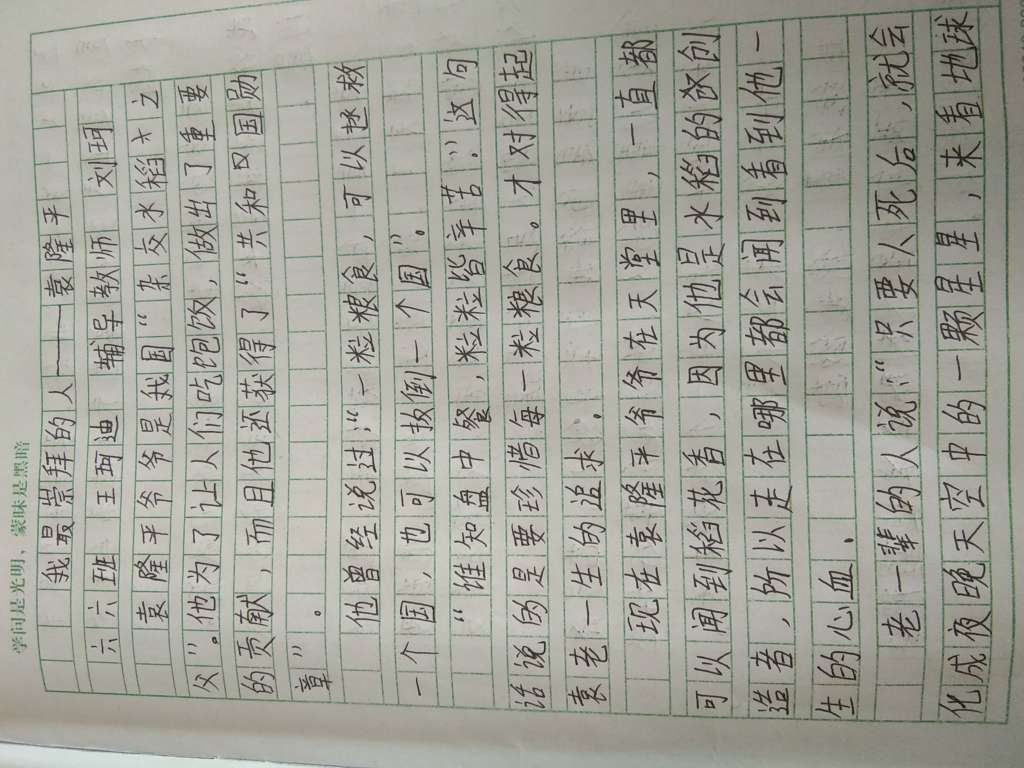 学问是光明，蒙昧是黑暗
我最崇拜的人——袁隆平
六六班 王珂迪 辅导教师 刘珂
袁隆平爷爷是我国“杂交水稻之
父”。他为了让人们吃饱饭，做出了重要
的贡献，而且他还获得了“共和国勋
章”。
他曾经说过：“一粒粮食，可以拯救
一个国，也可以放倒一个国”。
“谁知盘中餐，粒粒皆辛苦。”这句
话说的是要珍惜每一粒粮食。才对得起
袁老一生的追求。
现在袁隆平爷爷在天堂里，一直都
可以闻到稻花香，因为他是水稻的创
造者，所以走在哪里都会闻到看到他一
生的心血。
老一辈的人说：“只要人死后，就会
化成夜晚天空中的一颗星星，来看地球